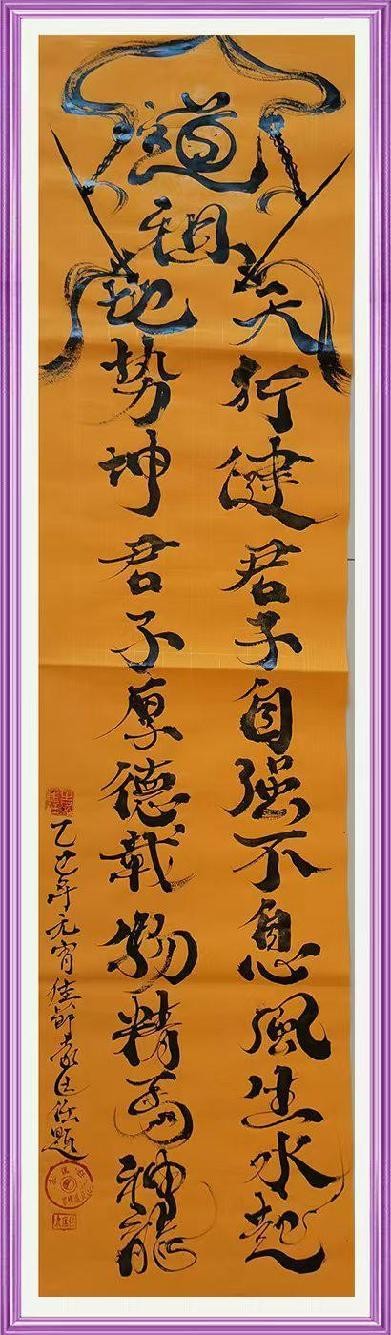 道祖
天行健君子自强不息風生水起
地势坤君子厚德載物精馬神龍
乙巳年元宵佳節
題